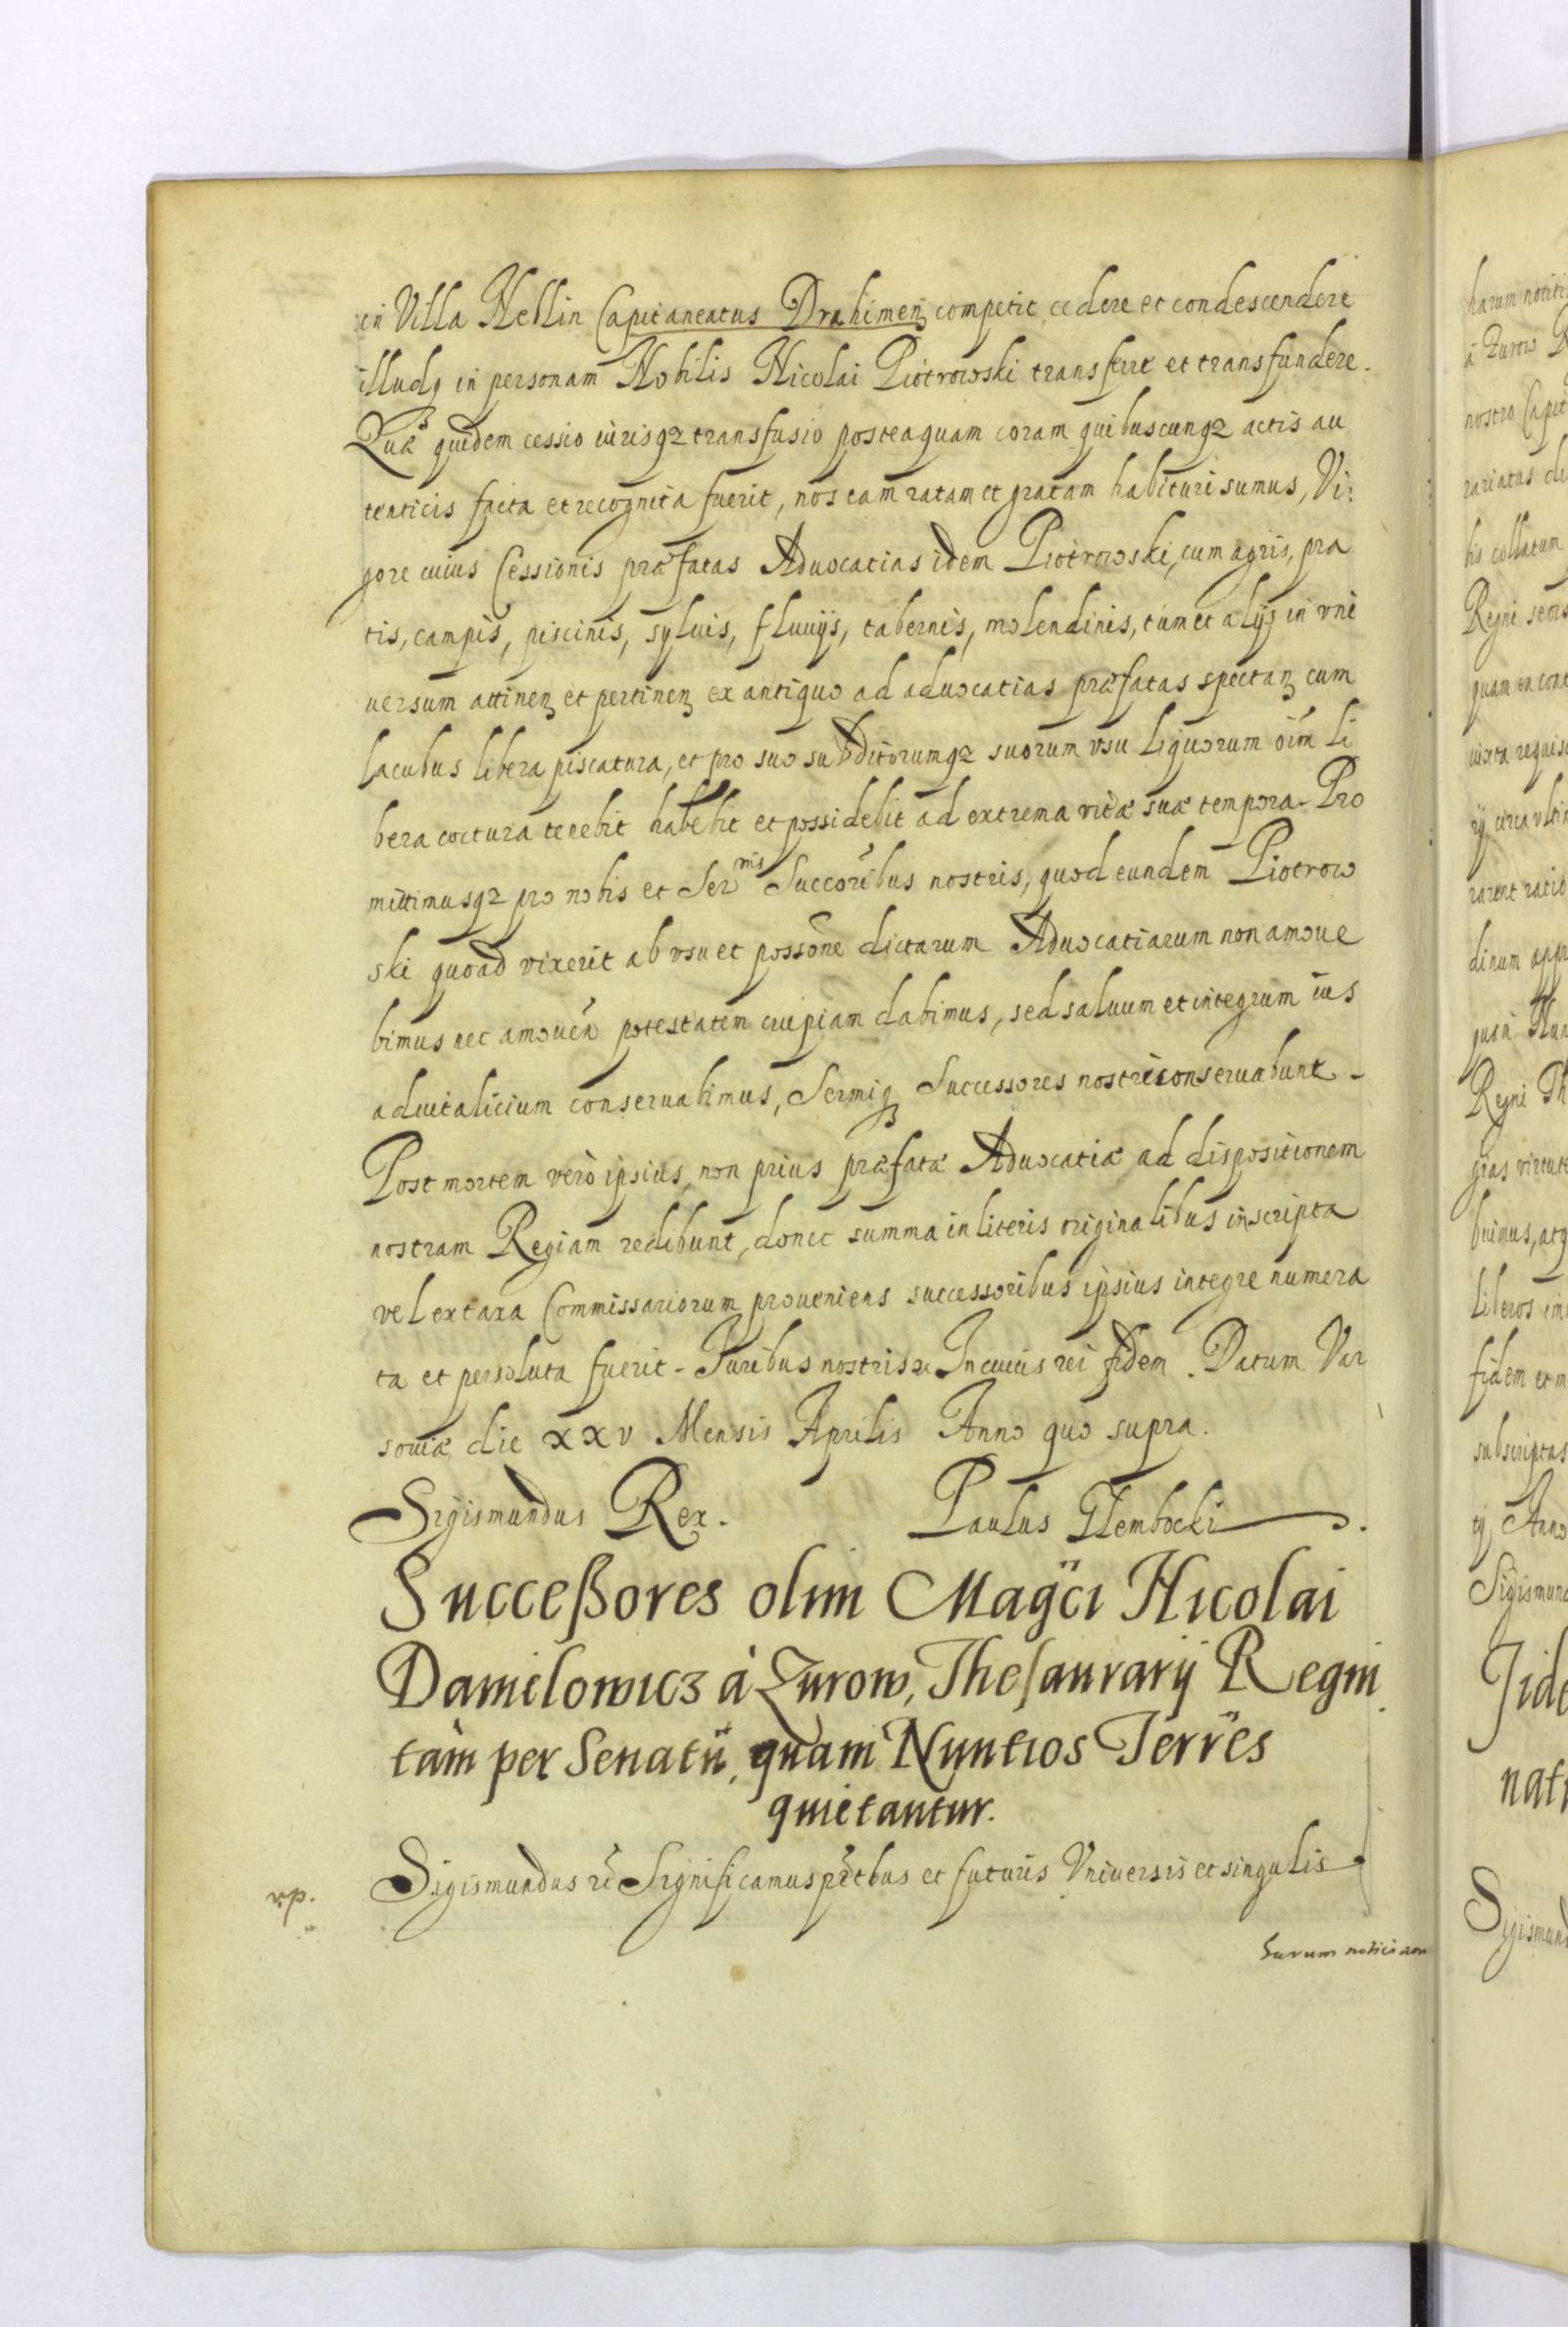 in Villa Heblin Capitaneatus Drahimen competit cedere et condescendere
illudq in personam Nobilis Nicolai Piotrowski transferre et transfundere.
Quæ quidem cessio iurisqz transfusio posteaquam coram quibuscunqz actis au
tenticis facta et recognita fuerit, nos eam ratam et gratam habituri sumus, Vi:
gore cuius Cessionis præfatas Aduocatias idem Piotrowski, cum agris, pra
tis, campis, piscinis, syluis, fluuijs, tabernis, molendinis, tum et alijs in vni
uersum attinen et pertinen ex antiquo ad aduocatias præfatas spectan cum
lacubus libera piscatura, et pro suo subditorumqz suorum vsu liquorum oim li
bera coctura tenebit habebit et possidebit ad extrema vitæ suæ tempora. Pro
mittimusqz pro nobis et Ser mis Succoribus nostris, quod eundem Piotrow
ski quoad vixerit ab vsu et possõne dictarum Aduocatiarum non amoue
bimus nec amouen potestatem cuipiam dabimus, sed saluum et integrum ius
aduitalicium conseruabimus, Sermiq Successores nostri conseruabunt.
Post mortem verò ipsius, non prius præfatæ Aduocatiæ ad dispositionem
nostram Regiam redibunt, donec summa in literis originalibus inscripta
vel ex taxa Commissariorum proueniens successoribus ipsius integre numera
ta et persoluta fuerit. Iuribus nostris In cuius rei fidem. Datum Var
souiæ die xxv Mensis Aprilis Anno quo supra.
Sigismundus Rex. Paulus Glembocki
Succeßores olim Magci Nicolai
Danilowicz à Zurow, Thesaurarij Regni
tàm per Senatũ, quàm Nuntios Terres
quietantur.
rp. Sigismundus Significamus pñtbus et futuris Vniuersis et singulis
harum noticiam
harum notiti
à Zurow
nostro Capit
rariatus
bis collatum
Regni
quam
iuxta
circa
rarent ratio
dinum appr
quàm Nun
Regni Th
gias virtute
buimus, atq
liberos
fidem et m
subscriptas
Anno
Sigismund
Iide
Sigismund